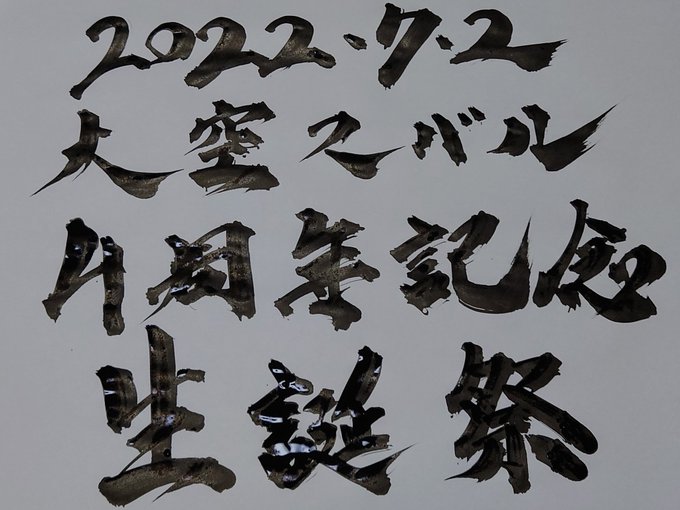 2022.7.2
大空スバル
4周年記念
生誕祭